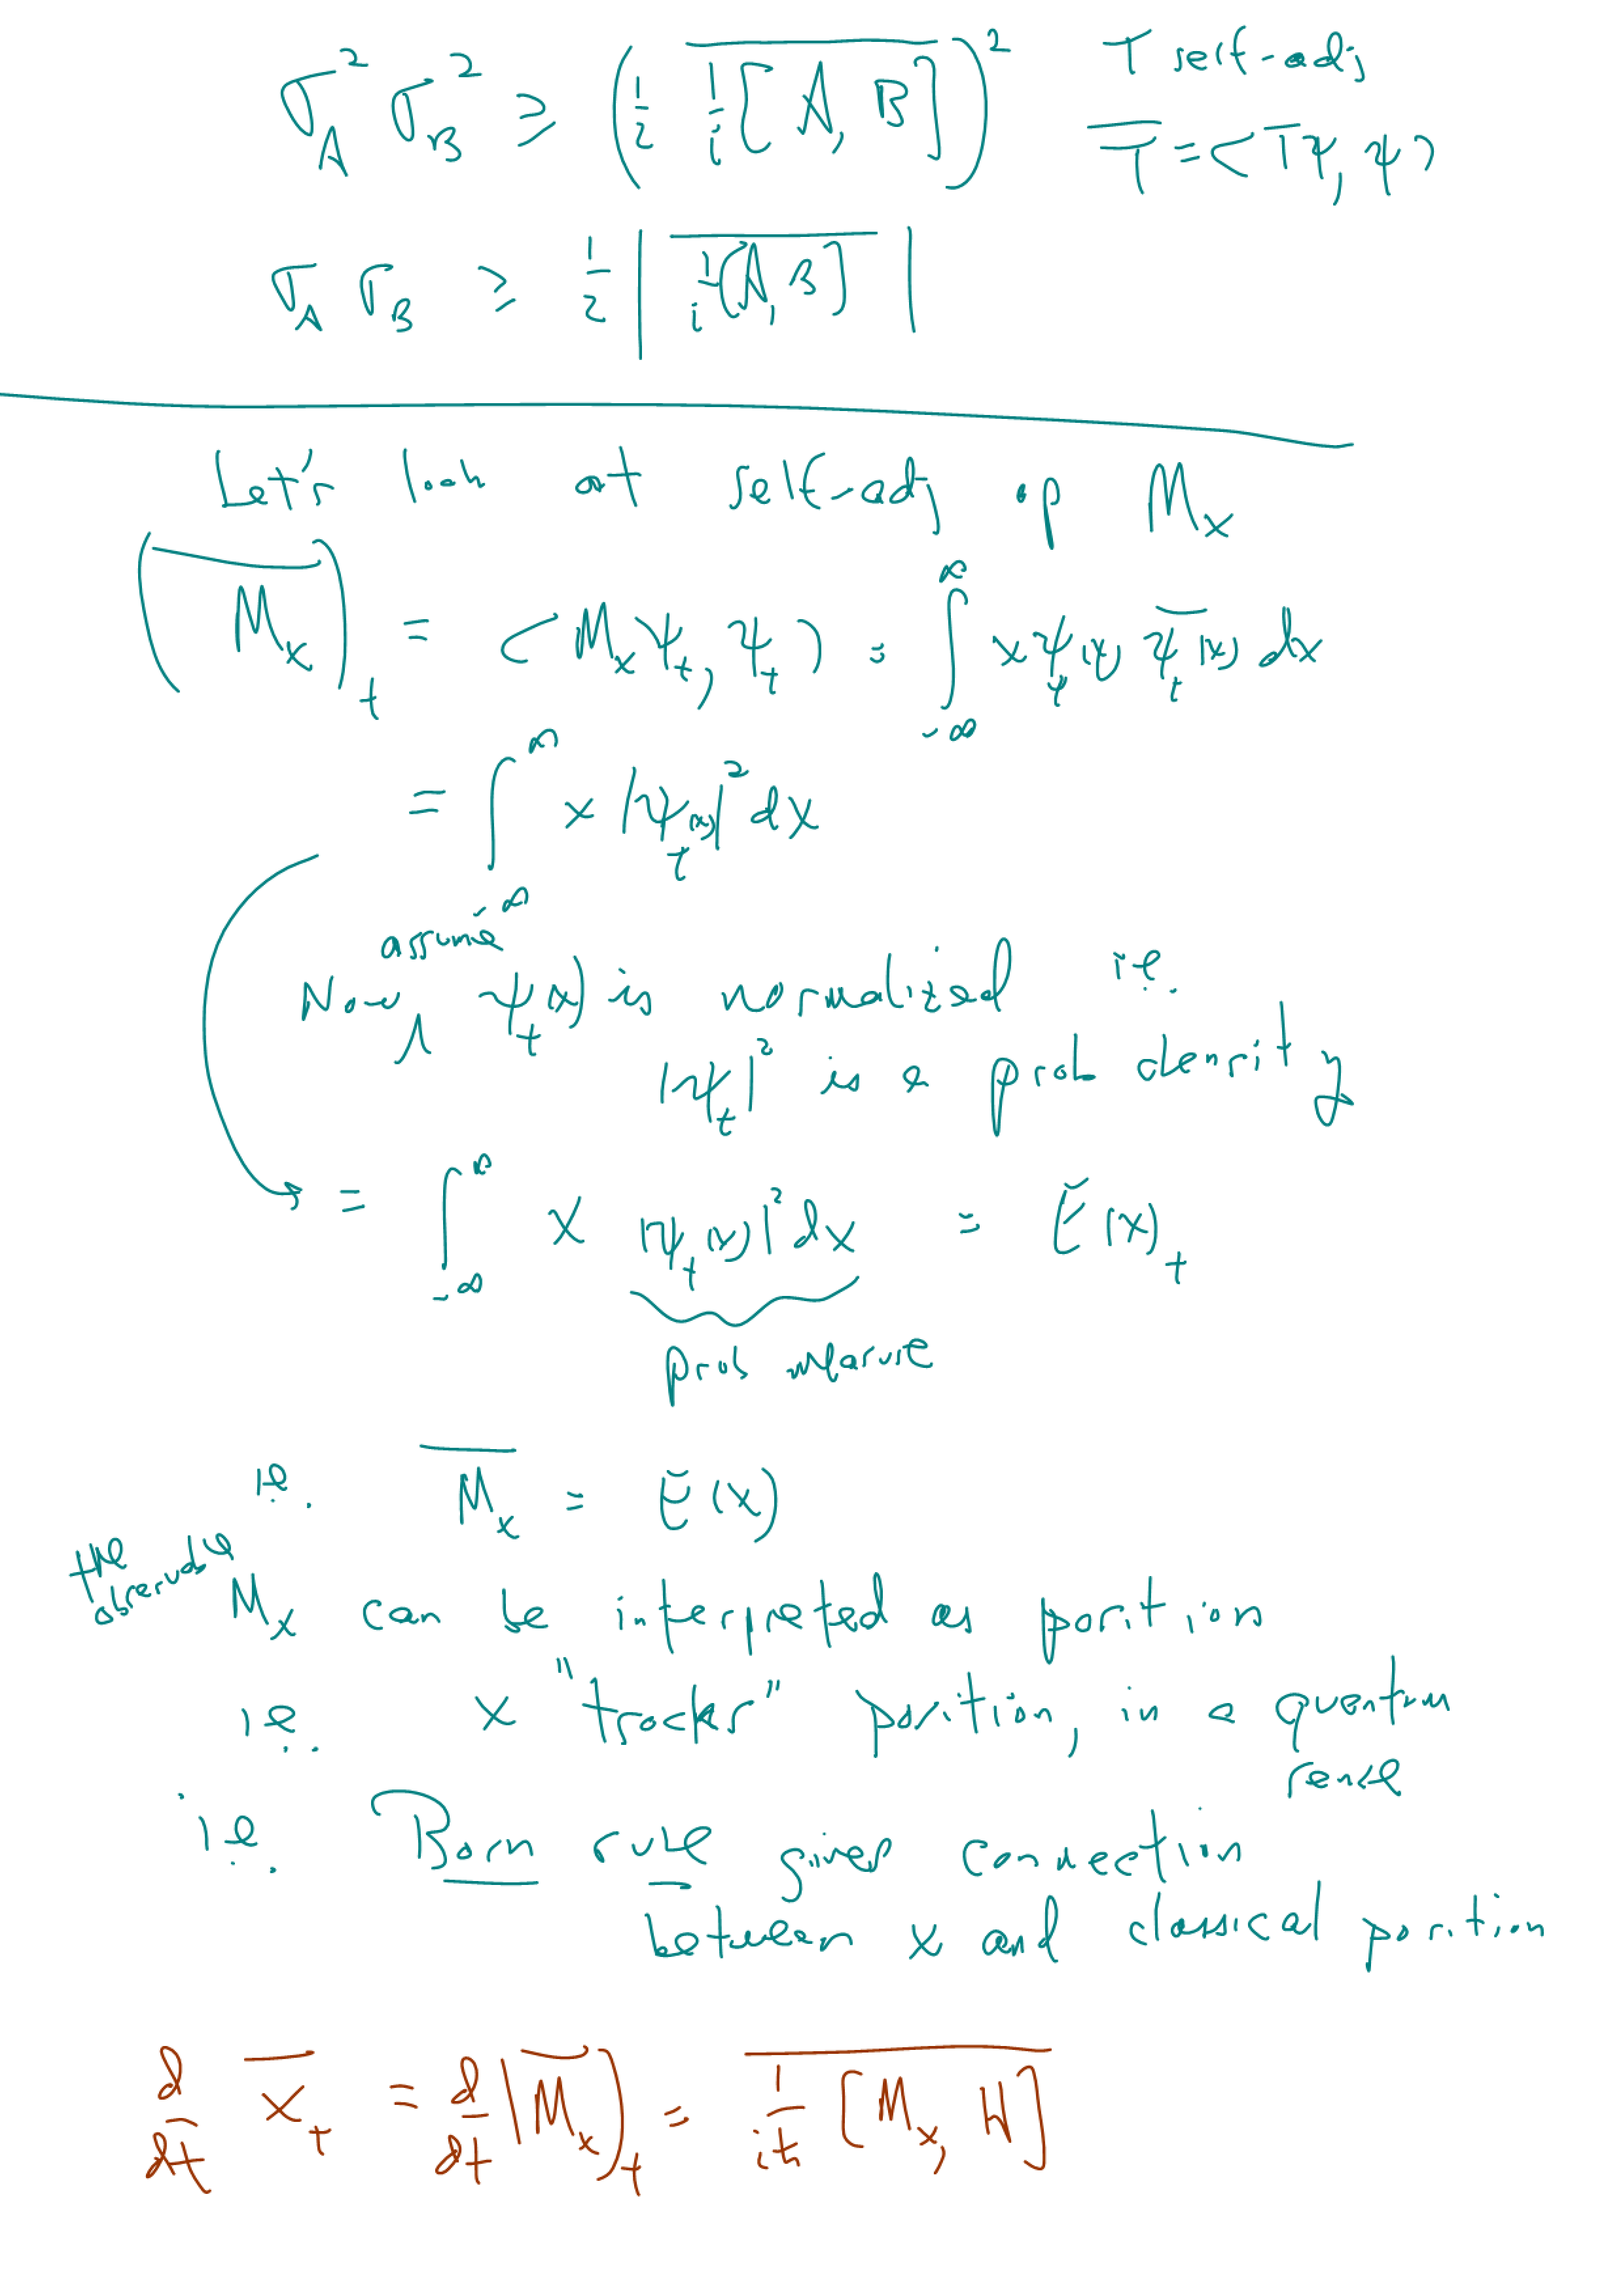 σ_A² σ_B² ≥ (½ \overline{1/i [A, B]})² T self-adj
\overline{T} = <Tψ, ψ>
σ_A σ_B ≥ ½ | \overline{1/i [A, B]} |
Let's look at self-adj op M_x
(\overline{M_x})_t = <M_x ψ_t, ψ_t> = ∫_{-∞}^{∞} x ψ_t(x) \overline{ψ_t}(x) dx
= ∫_{-∞}^{∞} x |ψ_t(x)|² dx
assume
Now ∧ ψ_t(x) is normalized i.e.
|ψ_t|² is a prob density
= ∫_{-∞}^{∞} x |ψ_t(x)|² dx = E(x)_t
prob measure
i.e. \overline{M_x} = E(x)
the observable M_x can be interpreted as position
i.e. x "tracks" position, in a quantum
sense
i.e. Born rule gives connection
between x and classical position
d/dt \overline{x}_t = d/dt (\overline{M_x})_t = \overline{1/iħ [M_x, H]}